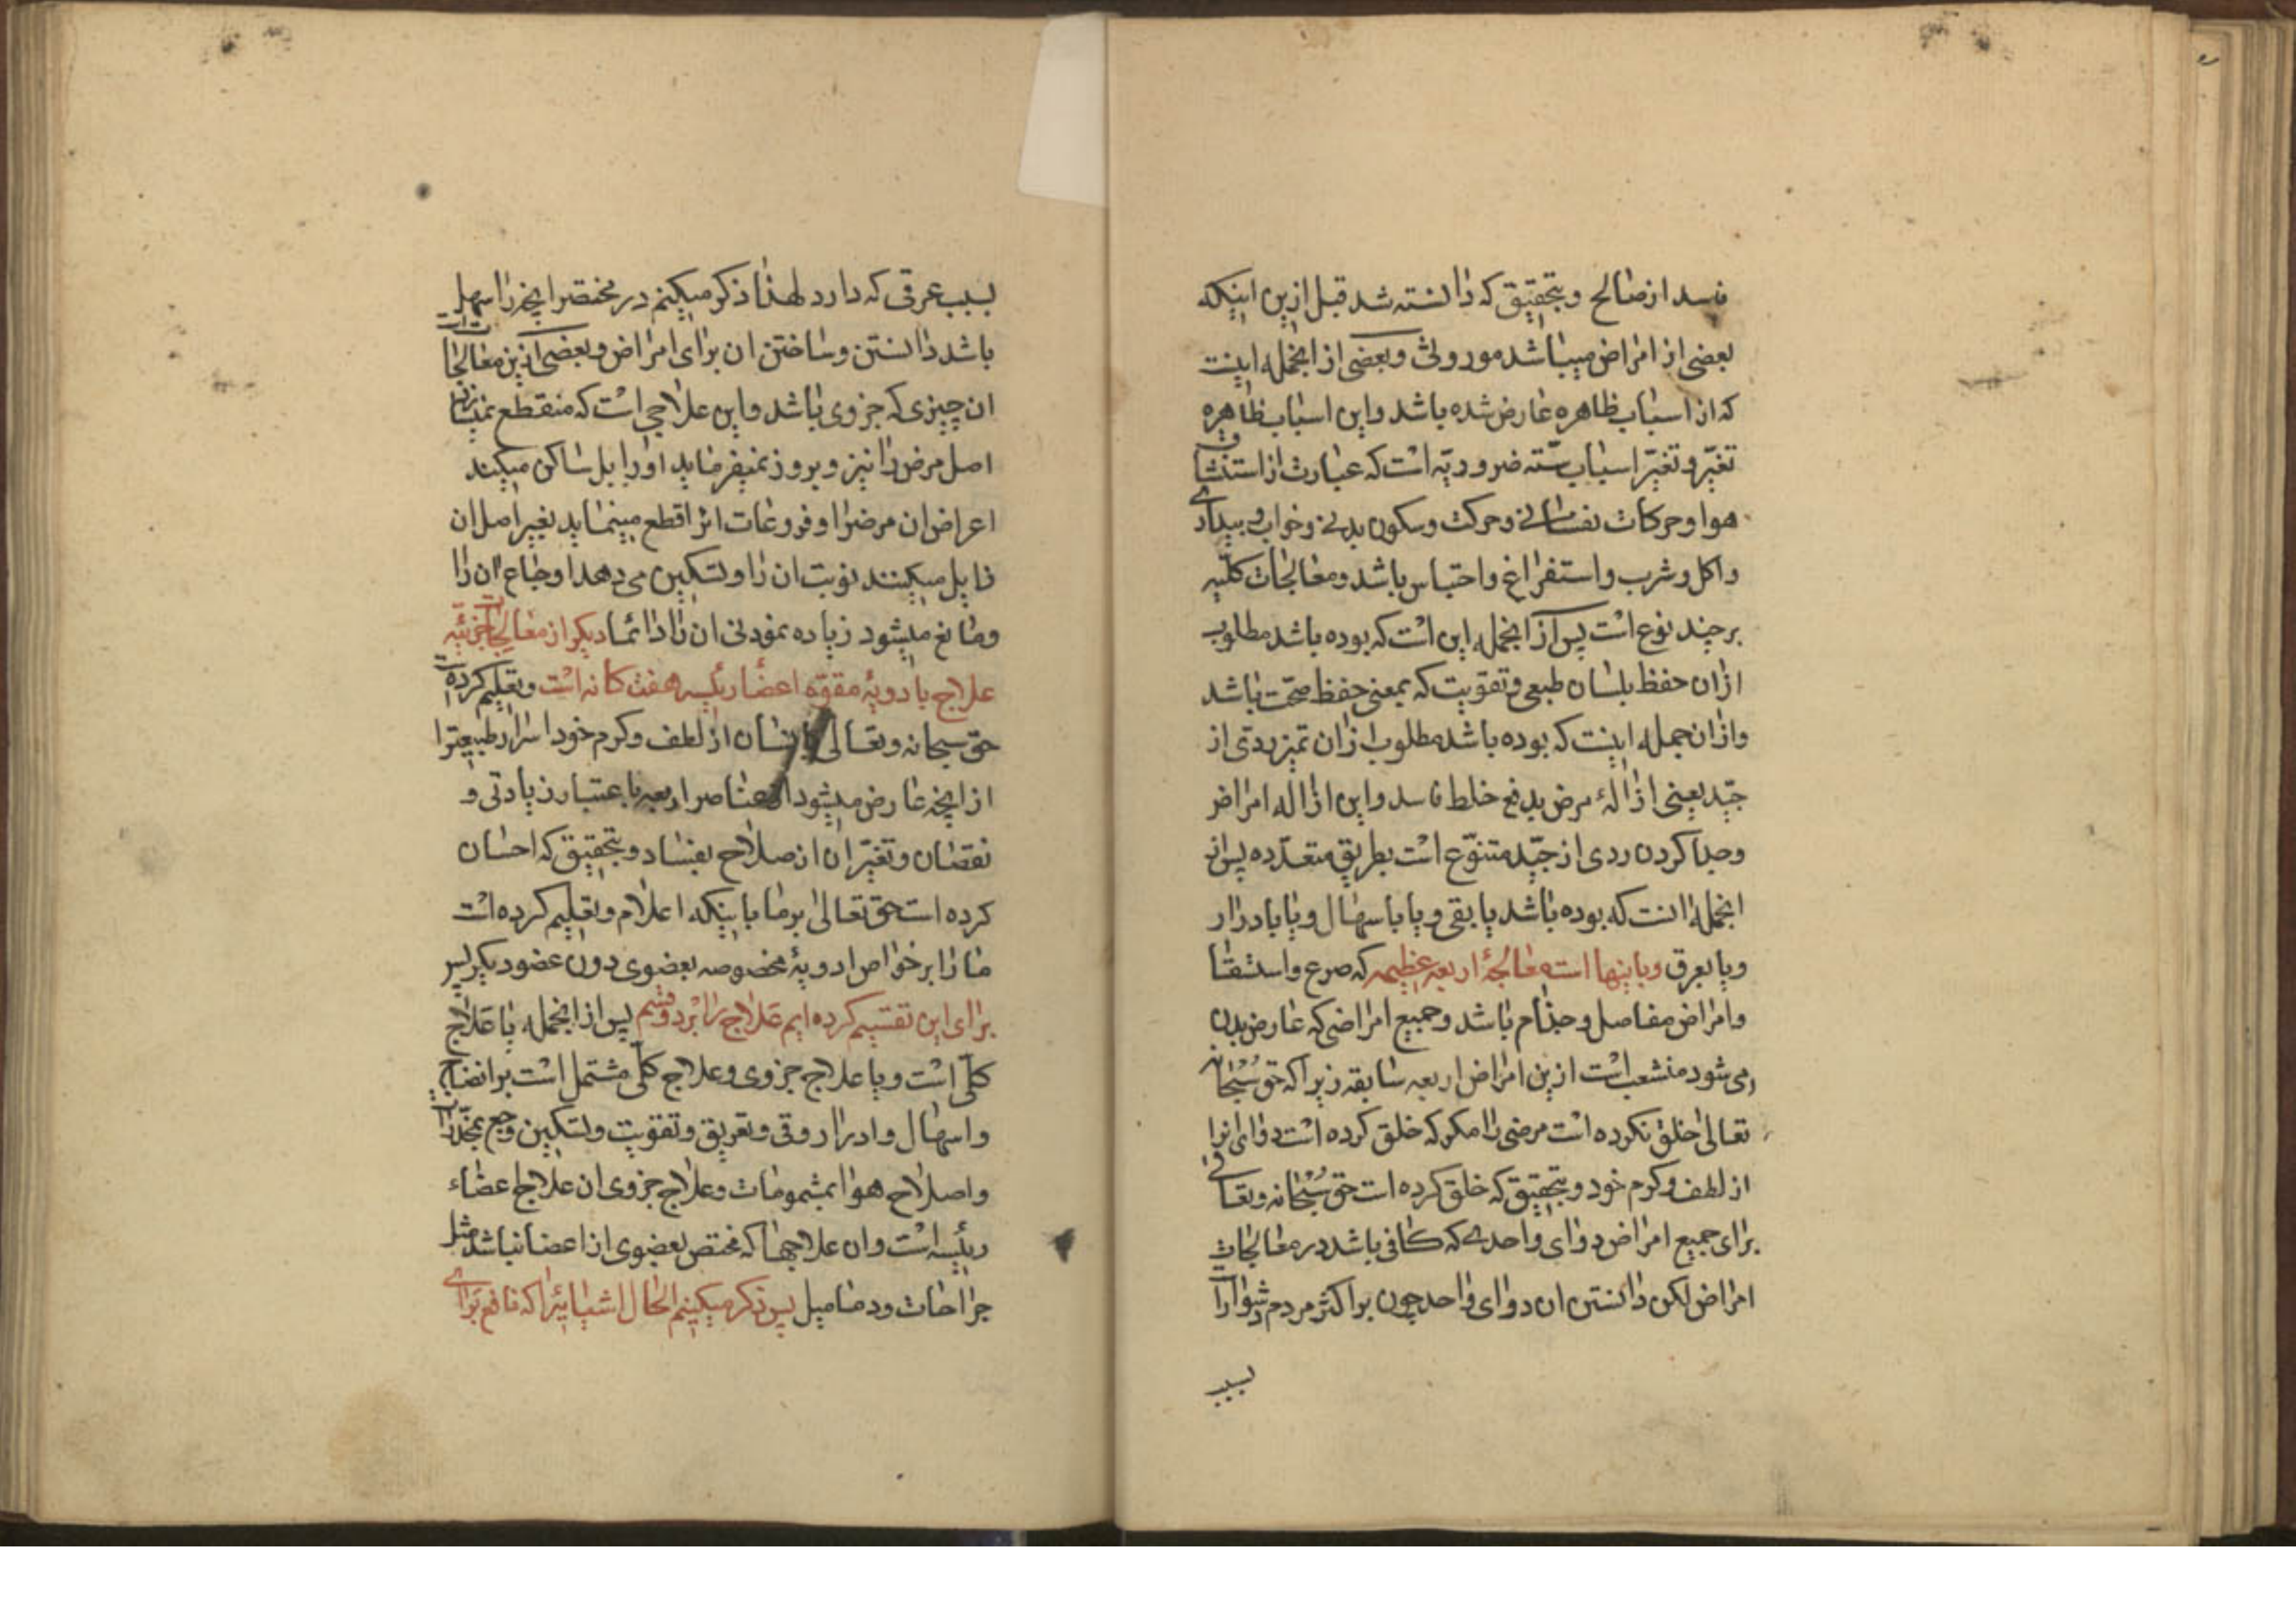 فاسد از صالح و بتحقیق که دانسته شد قبل ازین اینکه
بعضی از امراض میباشد موروثی و بعضی از انجمله اینست
که از اسباب ظاهره عارض شده باشد و این اسباب ظاهره
تغیّر و تغیّر اسباب ستّه ضروریّه است که عبارت از استنشاق
هوا و حرکات نفسانی و حرکت و سکون بدنی و خواب و بیداری
و اکل و شرب و استفراغ و احتباس باشد و معالجات کلّیه
بر چند نوع است پس از انجمله این است که بوده باشد مطلوب
ازان حفظ بلسان طبعی و تقویت که بمعنی حفظ صحّت باشد
و ازان جمله اینست که بوده باشد مطلوب ازان تمیز ردی از
جیّد یعنی ازالهٔ مرض بدفع خلط فاسد و این ازاله امراض
و جدا کردن ردی از جیّد متنوّع است بطریق متعدّده پس از
انجمله انست که بوده باشد یا بقی و یا باسهال و یا بادرار
و یا بعرق و باینها است معالجهٔ اربعه عظیمه که صرع و استسقا
و امراض مفاصل و جذام باشد و جمیع امراضی که عارض بدن
می شود منشعب است ازین امراض اربعه سابقه زیرا که حق سُبْحانه
تعالی خلق نکرده است مرضی را مکر که خلق کرده است دوای انرا
از لطف و کرم خود و بتحقیق که خلق کرده است حق سُبْحانه و تعالی
برای جمیع امراض دوای واحدی که کافی باشد در معالجات
امراض لکن دانستن ان دوای واحد چون بر اکثر مردم دشوار است
بسبب
بسبب عرقی که دارد لهذا ذکر میکنیم در مختصر انچه را سهل
باشد دانستن و ساختن ان برای امراض و بعضی ازین معالجات
ان چیزی که جزوی باشد و این علاجی است که منقطع نمیسازد
اصل مرض را نیز و بروز نمیفرماید او را بل ساکن میکند
اعراض ان مرض را و فروعات انرا قطع مینماید بغیر اصل ان
زایل میکنند نوبت ان را و تسکین می دهد اوجاع ان را
و مانع میشود زیاده نمودنی ان را دائما دیکر از معالجات جزئیّه
علاج بادویهٔ مقوّه اعضا رئیسه هفت کانه است و تعلیم کرده است
حق سبحانه و تعالی بانسان از لطف و کرم خود اسرار طبیعترا
از انچه عارض میشود از عناصر اربعه باعتبار زیادتی و
نقصان و تغیّر ان از صلاح بفساد و بتحقیق که احسان
کرده است حق تعالی بر ما باینکه اعلام و تعلیم کرده است
ما را بر خواص ادویهٔ مخصوصه بعضوی دون عضو دیکر پس
برای این تقسیم کرده ایم علاج را بر دو قسم پس از انجمله یا علاج
کلّی است و یا علاج جزوی و علاج کلّی مشتمل است بر انضاج
و اسهال و ادرار و قی و تعریق و تقویت و تسکین وجع بمخدّرات
و اصلاح هوا بمشمومات و علاج جزوی ان علاج اعضاء
رئیسه است و ان علاجها که مختص بعضوی از اعضا نباشد مثل
جراحات و دمامیل پس ذکر میکنیم الحال اشیائیرا که نافع برای